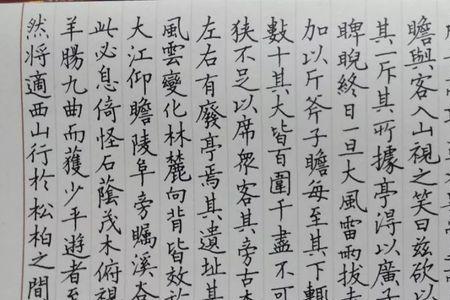 然将適西山行於松柏之間
羊腸九曲而獲少平遊者至
此必息倚怪石蔭茂木俯視
大江仰瞻陵阜旁矚溪谷
風雲變化林麓向背皆效於
左右有廢亭焉其遺址甚
狹不足以席眾客其旁古木
數十其大皆百圍千盡不可
加以斤斧子瞻每至其下輒
睥睨終日一旦大風雷雨拔去
其一斥其所據亭得以廣
瞻與客入山視之笑曰茲欲以